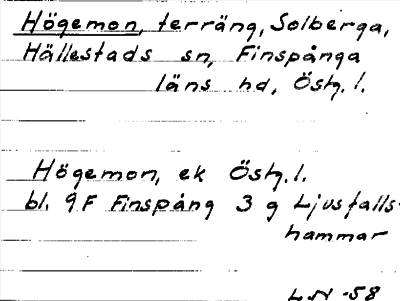 Högemon, terräng, Solberga,
Hällestads sn, Finspånga
läns hd, Östg. l.
Högemon, ek Östg. l.
bl. 9F Finspång 3 g Ljusfalls-
hammar
LN -58